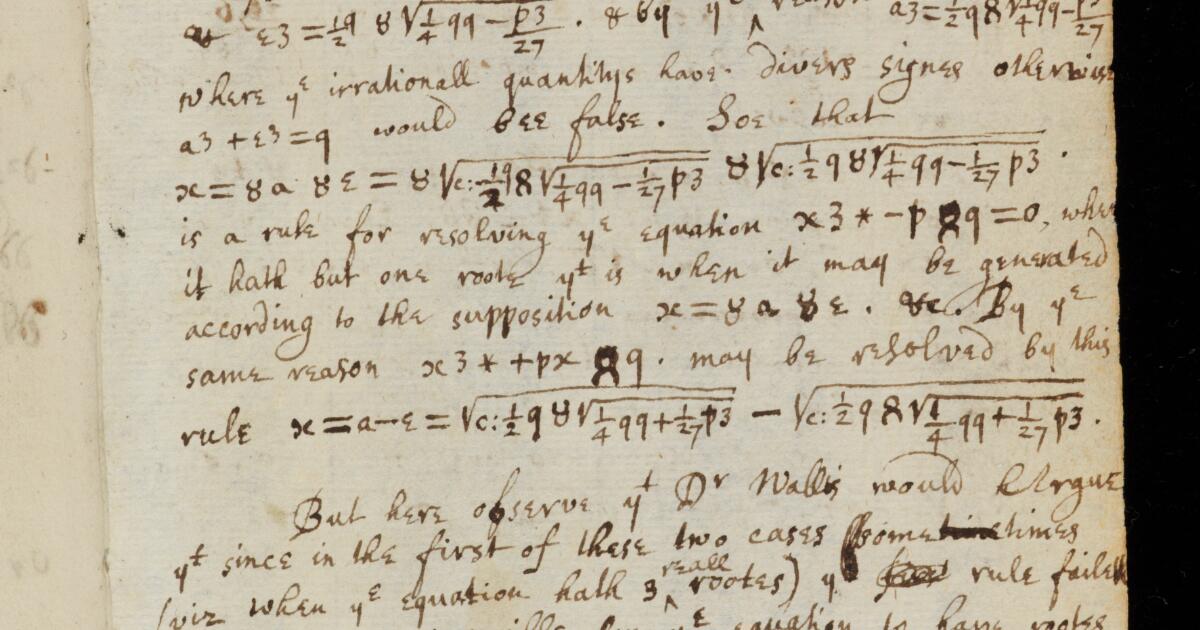 e3 = ½q 8 √¼qq − p3/27 . & by yᵉ ‸ reason a3 = ½q 8 √¼qq − p3/27
where yᵉ irrationall quantitys have divers signes otherwise
a3 + e3 = q would bee false. Soe that
x = 8 a 8 e = 8 √c: ½q 8 √¼qq − 1/27 p3 8 √c: ½ q 8 √¼qq − 1/27 p3 .
is a rule for resolving yᵉ equation x3 * − p 8 q = 0, when
it hath but one roote yᵗ is when it may be generated
according to the supposition x = 8 a 8 e . &c. By yᵉ
same reason x3 * + px 8 q . may be resolved by this
rule x = a − e = √c: ½ q 8 √¼qq + 1/27 p3 − √c: ½ q 8 √¼qq + 1/27 p3 .
But here observe yᵗ Dʳ Wallis would Argue
yᵗ since in the first of these two cases sometimes
(viz when yᵉ equation hath 3 ‸ reall rootes) yᵉ rule faileth
yᵉ equation to have rootes